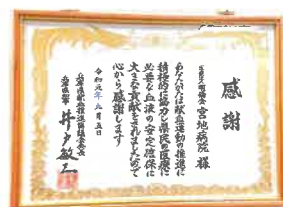 感謝
医療法人明倫会
宮地病院 様
あなたがたは献血運動の推進に
積極的に協力し県民の医療に
必要な血液の安定確保に
大きな貢献をされましたので
心から感謝します
令和元年九月五日
兵庫県献血推進協議会会長
兵庫県知事 井戸敏三